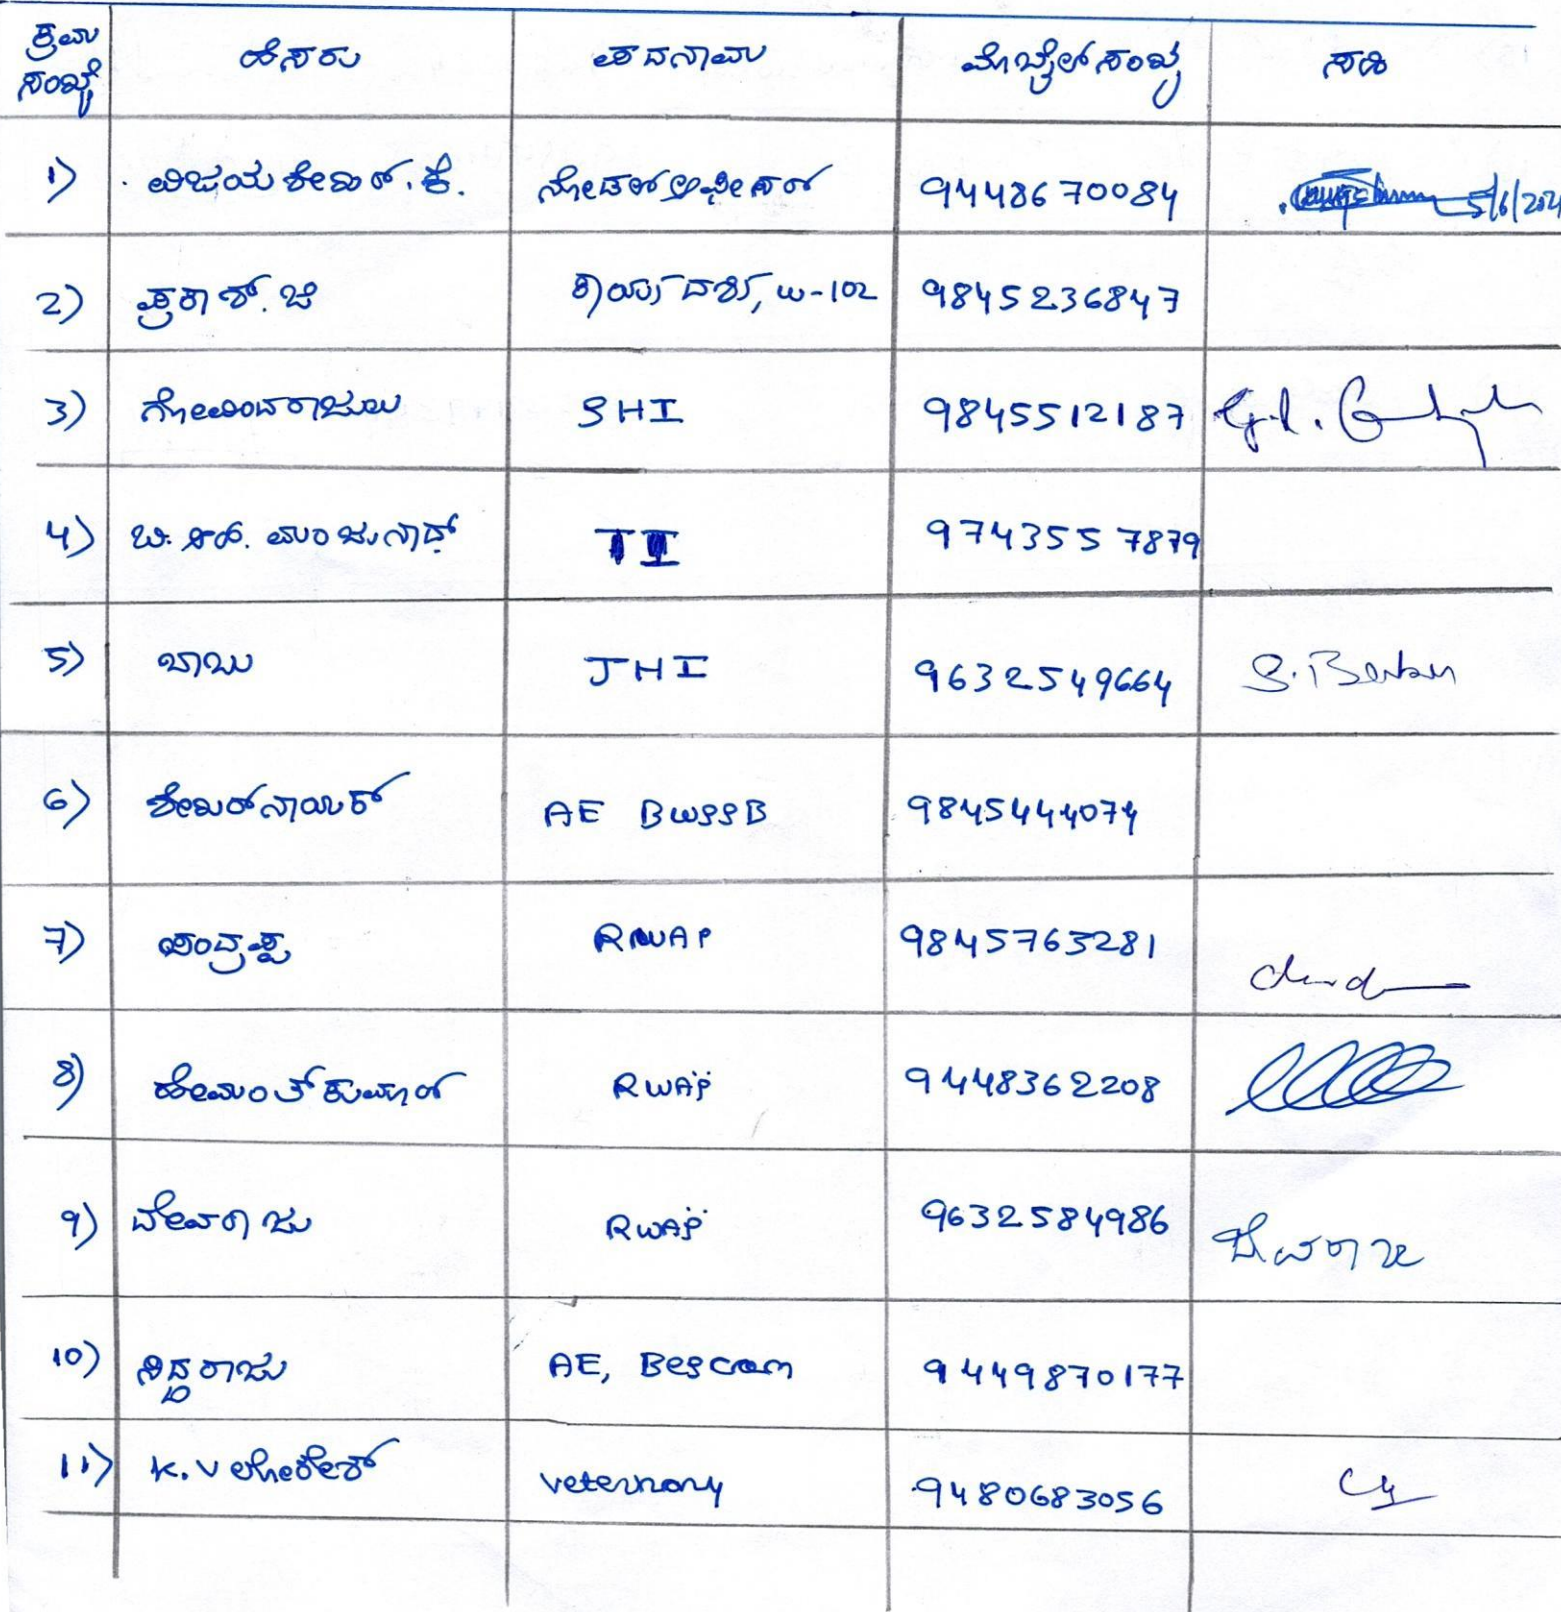 ಕ್ರಮ ಸಂಖ್ಯೆ ಹೆಸರು ಪದನಾಮ ಮೊಬೈಲ್ ಸಂಖ್ಯೆ ಸಹಿ
1) ವಿಜಯಶೇಖರ್.ಕೆ. ನೋಡಲ್ ಆಫೀಸರ್ 9448670084 5/6/202
2) ಪ್ರಕಾಶ್.ಜೆ ಕಾರ್ಯದರ್ಶಿ, W-102 9845236847
3) ಗೋವಿಂದರಾಜುಲು SHI 9845512187
4) ಬಿ.ಆರ್. ಮಂಜುನಾಥ್ TI 9743557879
5) ಬಾಬು JHI 9632549664 S.Babu
6) ಶೇಖರ್ ನಾಯಕ್ AE BWSSB 9845444074
7) ಚಂದ್ರಪ್ಪ RWAP 9845763281
8) ಹೇಮಂತ್ ಕುಮಾರ್ RWAP 9448362208
9) ದೇವರಾಜು RWAP 9632584986 ದೇವರಾಜ
10) ಸಿದ್ದರಾಜು AE, Bescom 9449870177
11) K.V ಲೋಕೇಶ್ veternary 9480683056